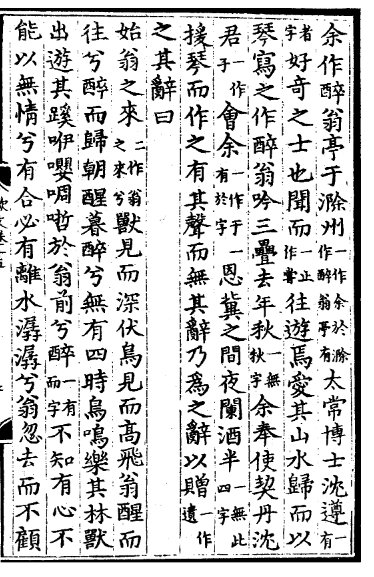 余作醉翁亭于滁州一作余於滁作醉翁亭有太常博士沈遵一有者字
好奇之士也聞而一作止嘗往遊焉愛其山水歸而以
琴寫之作醉翁吟三疊去年秋一無秋字余奉使契丹沈
君一作子會余一作于有於字恩冀之間夜闌酒半一無此四字
援琴而作之有其聲而無其辭乃爲之辭以贈一作遺
之其辭曰
始翁之來二作翁之來兮獸見而深伏鳥見而高飛翁醒而
往兮醉而歸朝醒暮醉兮無有四時鳥鳴樂其林獸
出遊其蹊咿嚶啁哳於翁前兮醉一有而字不知有心不
能以無情兮有合必有離水潺潺兮翁忽去而不顧